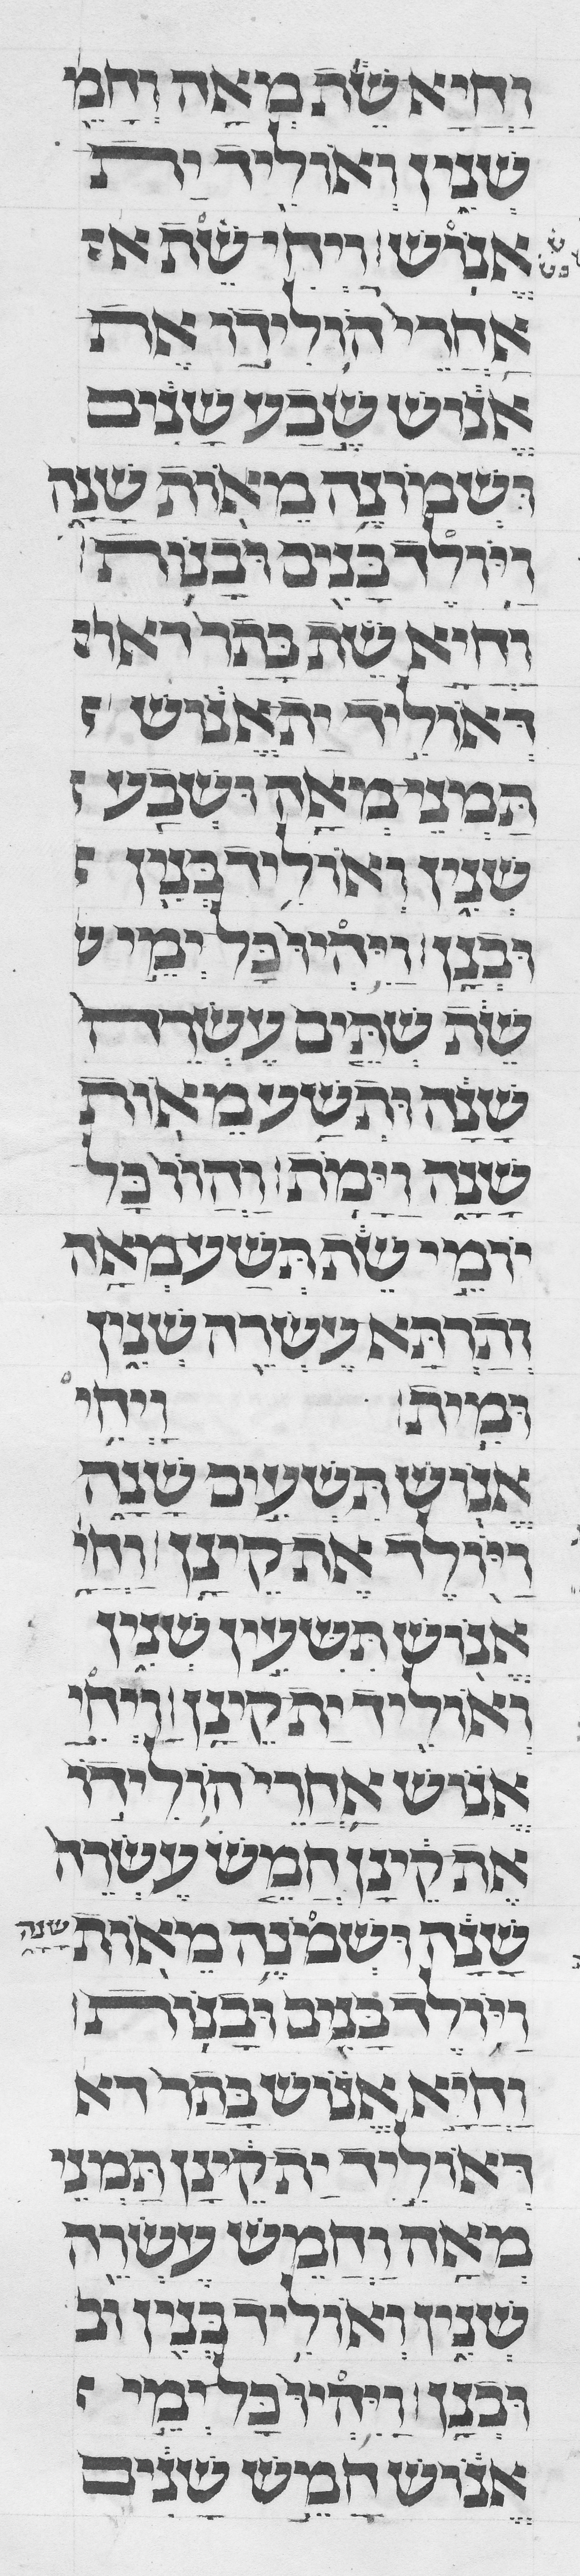 וַחֲיָא שֵׁת מְאָה וַחֲמֵ
שְׁנִין וְאוֹלֵיד יָת
אֱנוֹשׁ׃ וַיְחִי שֵׁת א
אַחֲרֵי הוֹלִידוֹ אֶת
אֱנוֹשׁ שֶׁבַע שָׁנִים
וּשְׁמוֹנֶה מֵאוֹת שָׁנָה
וַיּוֹלֶד בָּנִים וּבָנוֹת׃
וַחֲיָא שֵׁת בָּתַר דאולי
דְּאוֹלֵיד יַת אֱנוֹשׁ
תַּמְנֵי מְאָה וּשְׁבַע
שְׁנִין וְאוֹלֵיד בְּנִין
וּבְנָן׃ וַיִּהְיוּ כָּל יְמֵי ש
שֵׁת שְׁתֵּים עֶשְׂרֵה
שָׁנָה וּתְשַׁע מֵאוֹת
שָׁנָה וַיָּמֹת׃ וַהֲווֹ כָּל
יוֹמֵי שֵׁת תְּשַׁע מְאָה
וְתַרְתַּא עֶשְׂרֵה שְׁנִין
וּמִית׃ וַיְחִי
אֱנוֹשׁ תִּשְׁעִים שָׁנָה
וַיּוֹלֶד אֶת קֵינָן׃ וַחֲיָ
אֱנוֹשׁ תִּשְׁעִין שְׁנִין
וְאוֹלֵיד יַת קֵינָן׃ וַיְחִי
אֱנוֹשׁ אַחֲרֵי הוֹלִידוֹ
אֶת קֵינָן חֲמֵשׁ עֶשְׂרֵה
שָׁנָה וּשְׁמֹנֶה מֵאוֹת שָׁנָה
וַיּוֹלֶד בָּנִים וּבָנוֹת׃
וַחֲיָא אֱנוֹשׁ בָּתַר דא
דְּאוֹלֵיד יַת קֵינָן תַּמְנֵי
מְאָה וַחֲמֵשׁ עֶשְׂרֵה
שְׁנִין וְאוֹלֵיד בְּנִין וּבְ
וּבְנָן׃ וַיִּהְיוּ כָּל יְמֵי
אֱנוֹשׁ חָמֵשׁ שָׁנִים